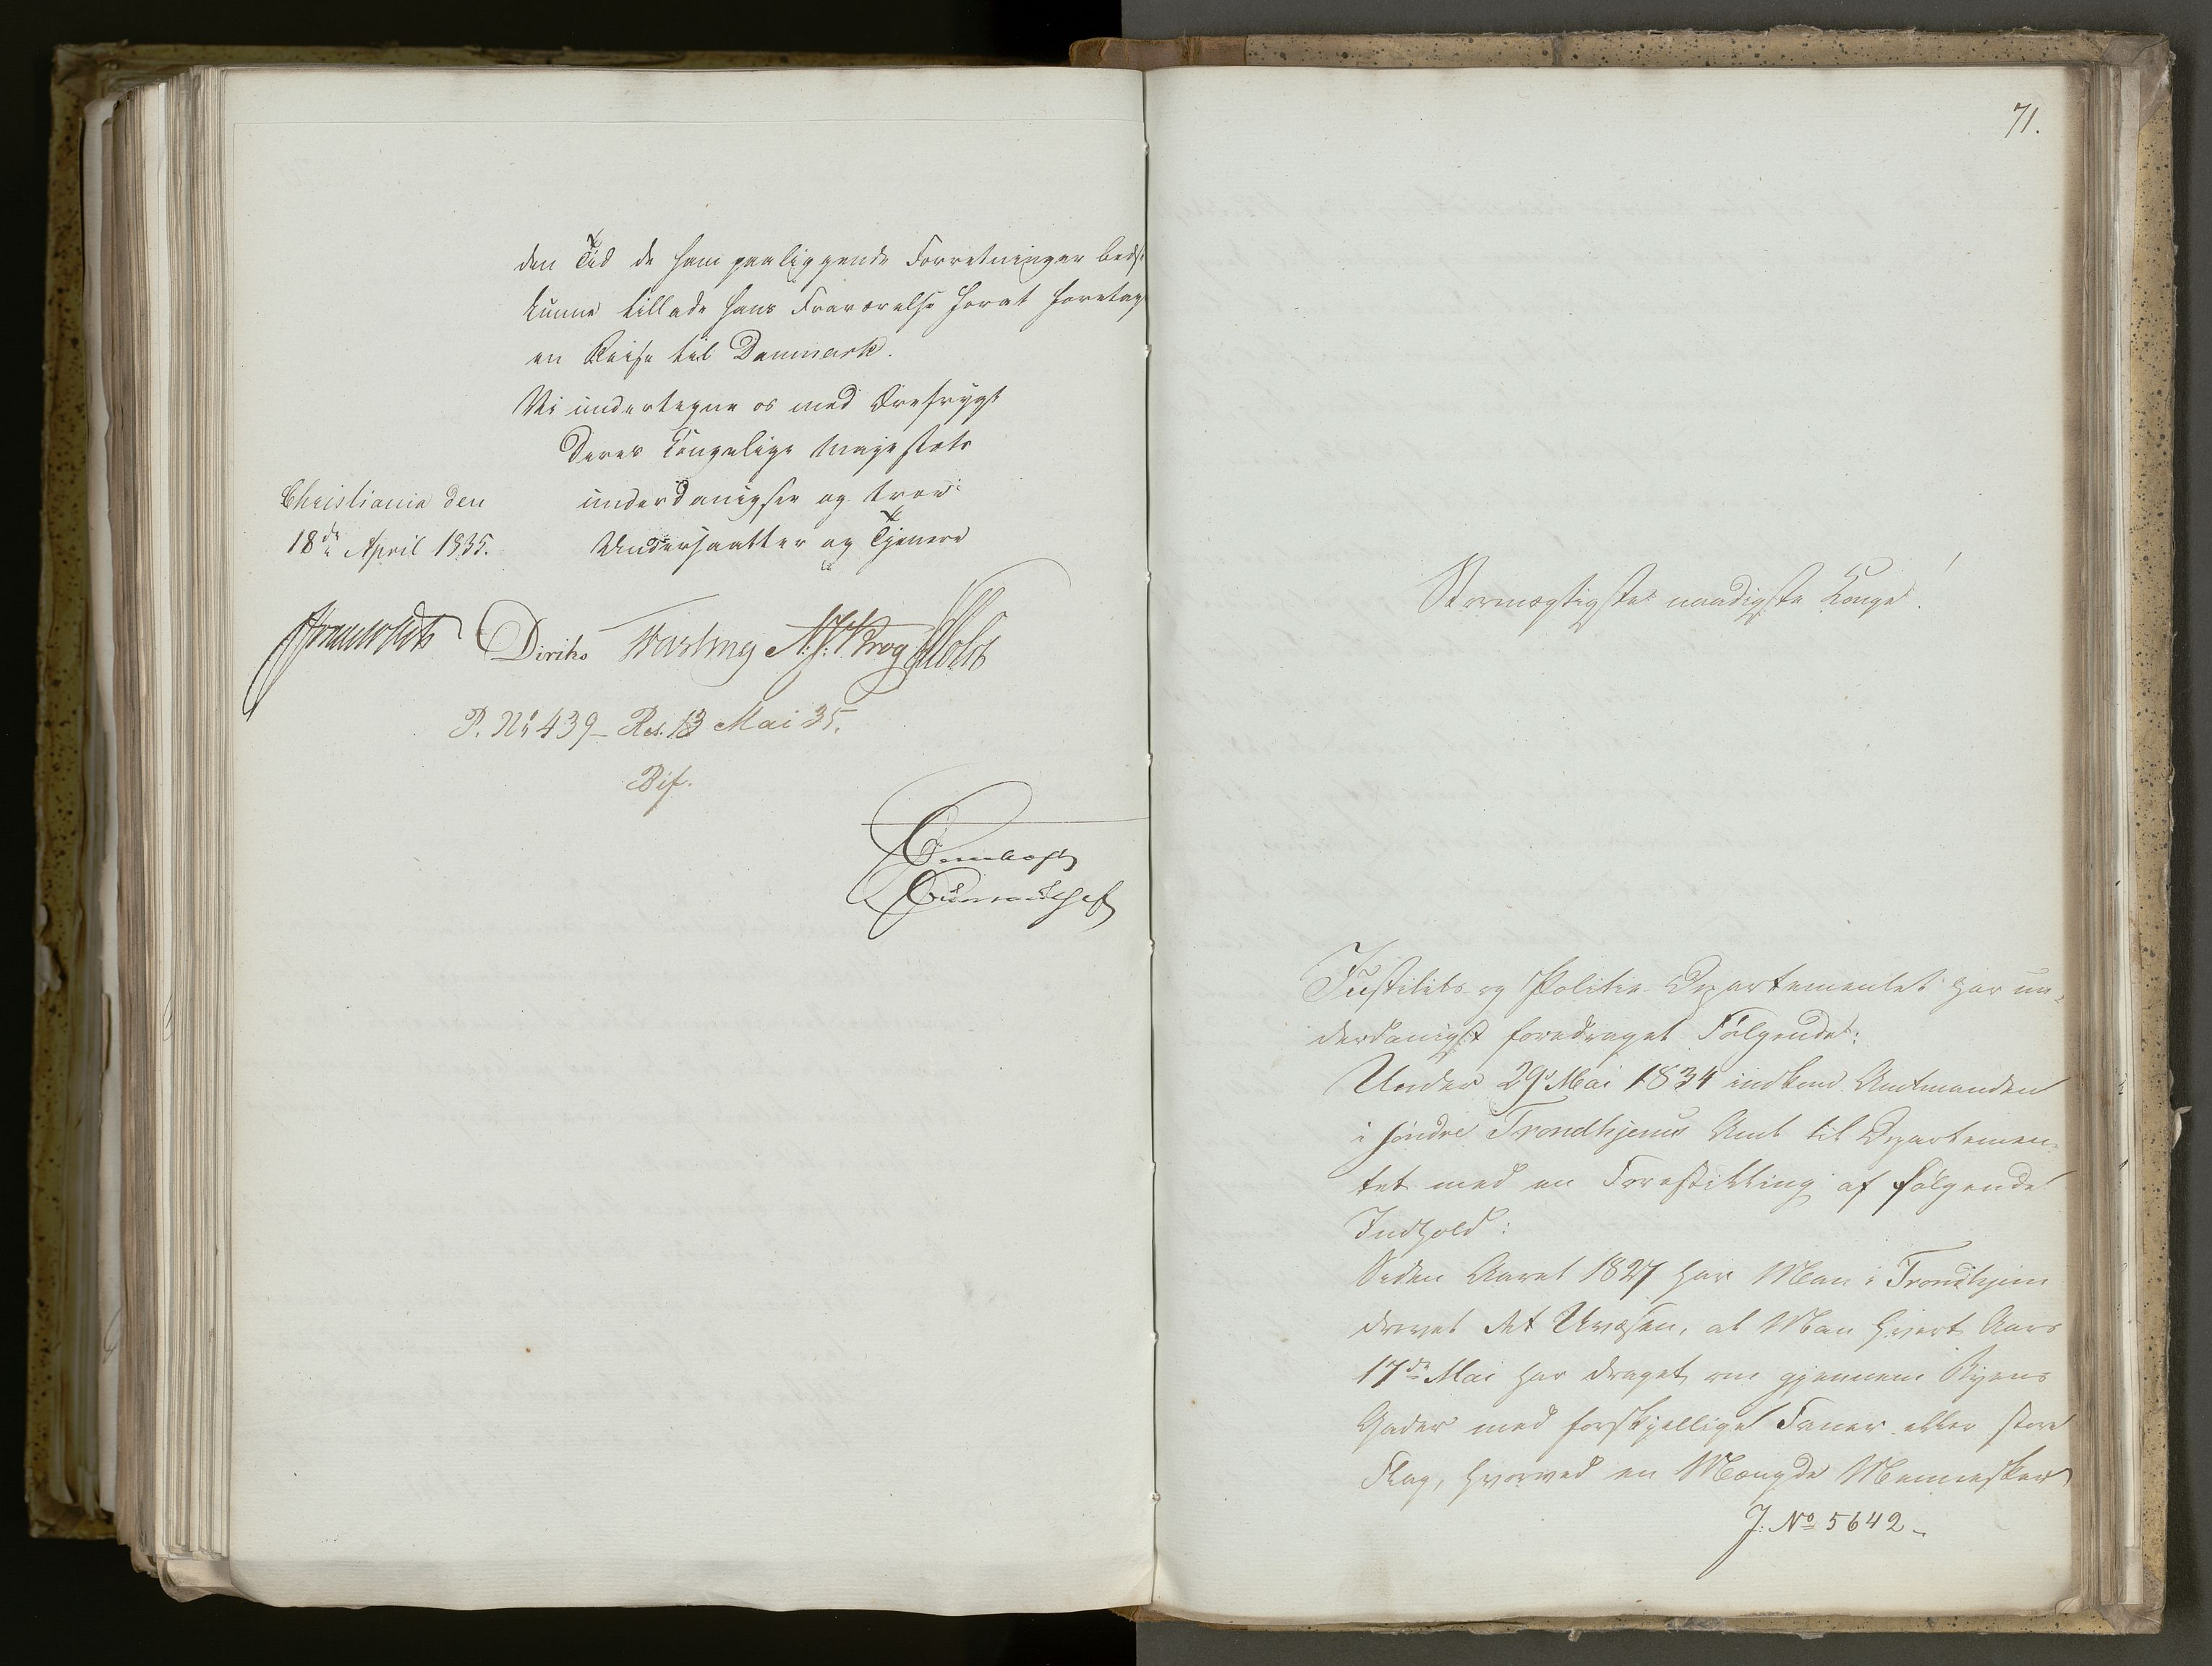 den Tid de ham paaliggende Forretninger bedst
kunne tillade hans Fraværelse forat foretage
en Reise til Danmark.
Vi undertegne os med Ærefrygt
Deres Kongelige Majestæts
Christiania den
18de April 1835.
underdanigste og troe
Undersaatter og Tjenere
Diriks Vosting N: J: Krog Holst
P. No 439 - Res. 13 Mai 35.
Bif.
71.
Stormægtigste naadigste Konge!
Justitits- og Politie-Departementet har un-
derdanigst foredraget Følgende:
Under 29 Mai 1834 indkom Amtmanden
i søndre Trondhjems Amt til Departemen-
tet med en Forestilling af følgende
Indhold:
Siden Aaret 1827 har Man i Trondhjem
drevet det Uvæsen, at Man hvert Aars
17de Mai har draget om gjennem Byens
Gader med forskjellige Faner eller store
Flag, hvorved en Mængde Mennesker
J. No 5642.